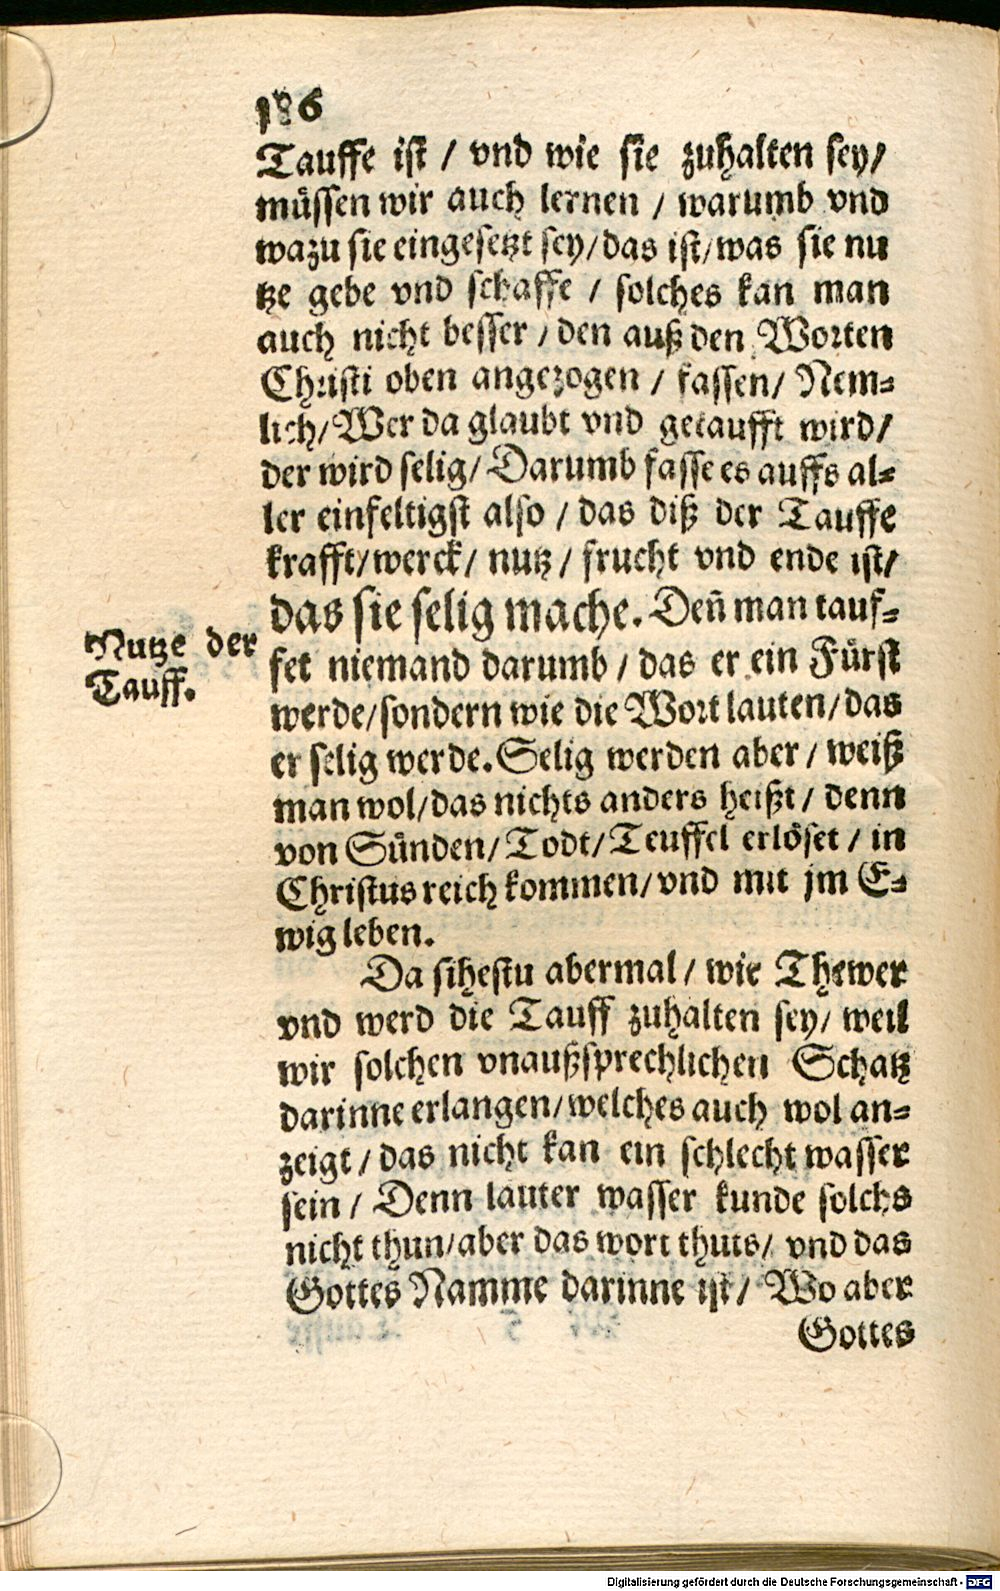 186
Tauffe ist / vnd wie sie zuhalten sey /
müssen wir auch lernen / warumb vnd
wazu sie eingesetzt sey / das ist / was sie nu
tze gebe vnd schaffe / solches kan man
auch nicht besser / den auß den Worten
Christi oben angezogen / fassen / Nem-
lich / Wer da glaubt vnd getaufft wird /
der wird selig / Darumb fasse es auffs al-
ler einfeltigst also / das diß der Tauffe
krafft / werck / nutz / frucht vnd ende ist /
das sie selig mache. Deñ man tauf-
Nutze der
Tauff.
fet niemand darumb / das er ein Fürst
werde / sondern wie die Wort lauten / das
er selig werde. Selig werden aber / weiß
man wol / das nichts anders heißt / denn
von Sünden / Todt / Teuffel erlöset / in
Christus reich kommen / vnd mit jm E-
wig leben.
Da sihestu abermal / wie Thewer
vnd werd die Tauff zuhalten sey / weil
wir solchen vnaußsprechlichen Schatz
darinne erlangen / welches auch wol an-
zeigt / das nicht kan ein schlecht wasser
sein / Denn lauter wasser kunde solchs
nicht thun / aber das wort thuts / vnd das
Gottes Namme darinne ist / Wo aber
Gottes
Digitalisierung gefördert durch die Deutsche Forschungsgemeinschaft - DFG